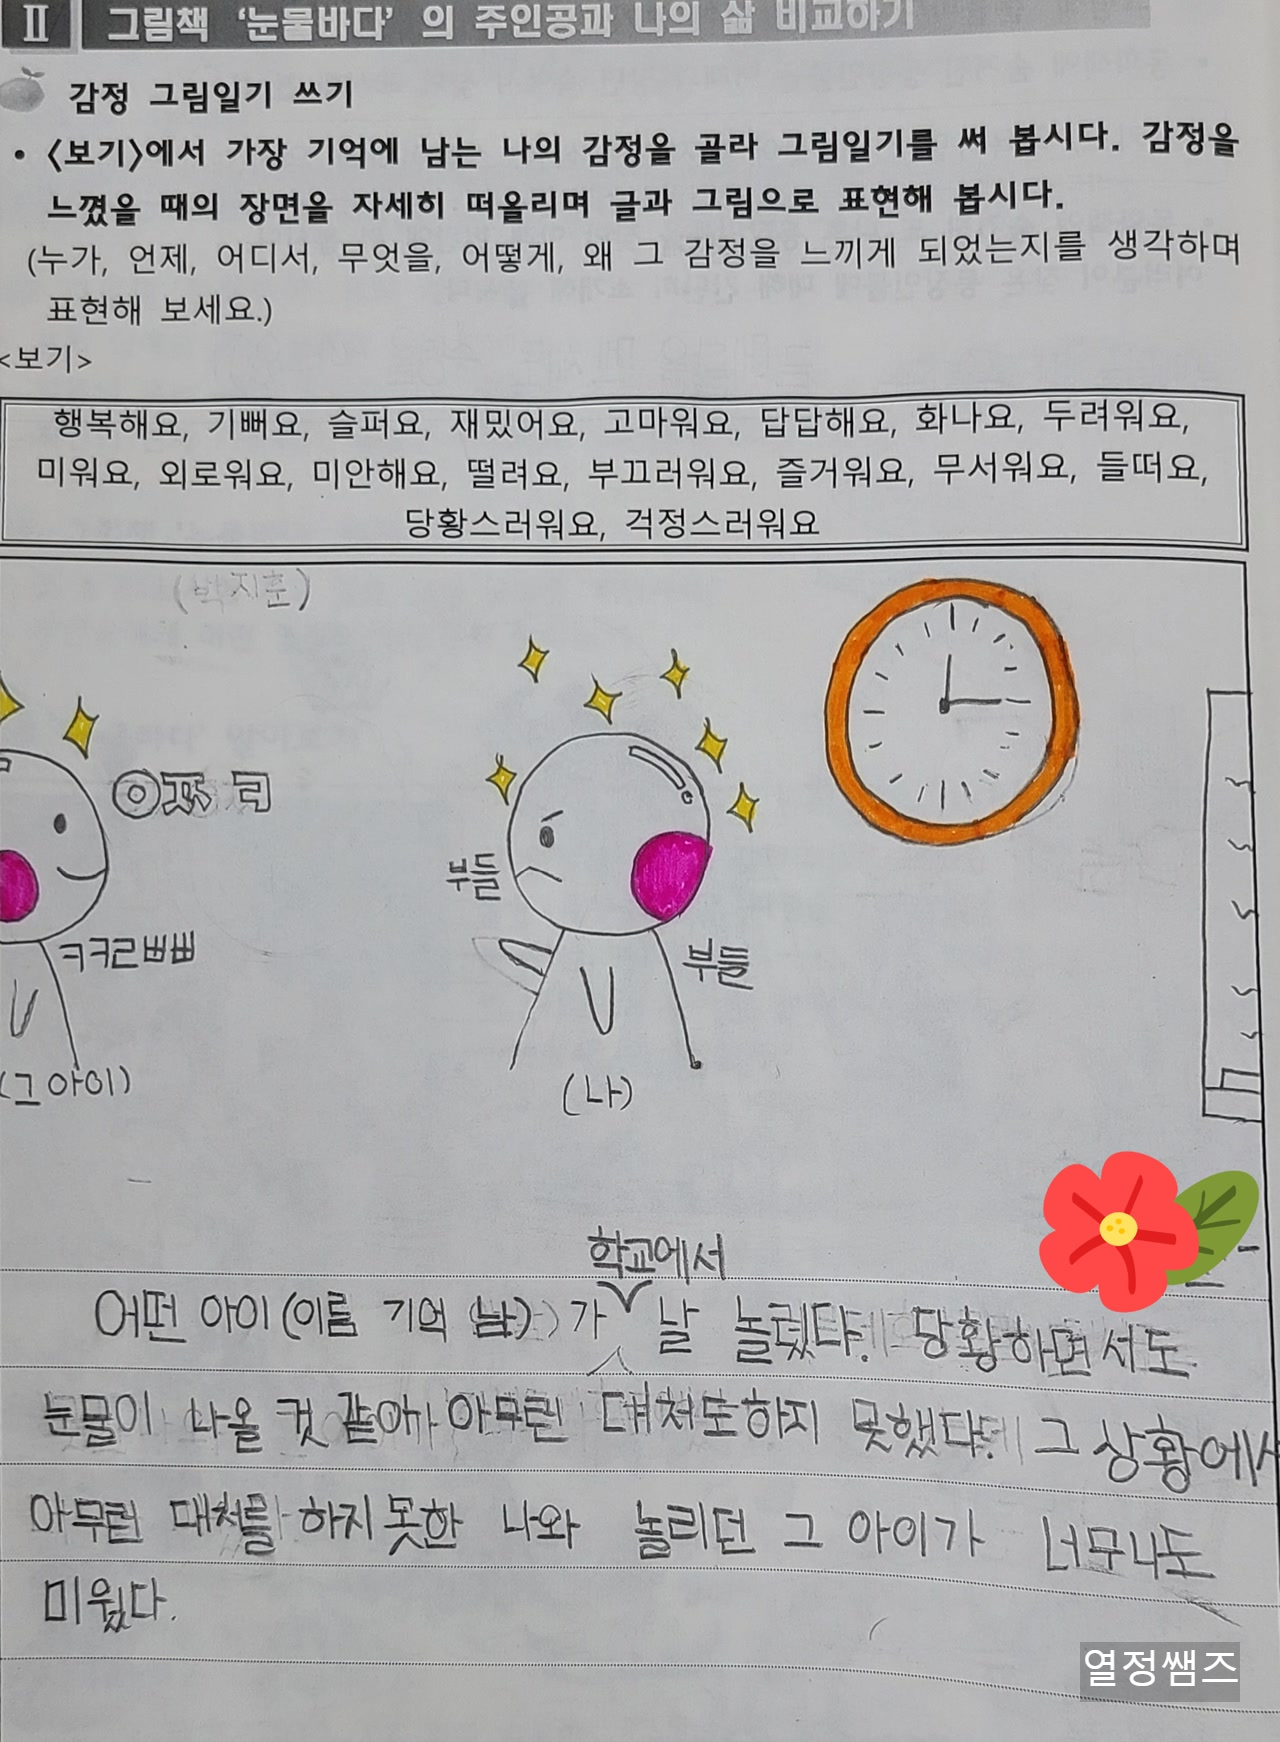 Ⅱ 그림책 ‘눈물바다’ 의 주인공과 나의 삶 비교하기
감정 그림일기 쓰기
• <보기>에서 가장 기억에 남는 나의 감정을 골라 그림일기를 써 봅시다. 감정을
느꼈을 때의 장면을 자세히 떠올리며 글과 그림으로 표현해 봅시다.
(누가, 언제, 어디서, 무엇을, 어떻게, 왜 그 감정을 느끼게 되었는지를 생각하며
표현해 보세요.)
<보기>
행복해요, 기뻐요, 슬퍼요, 재밌어요, 고마워요, 답답해요, 화나요, 두려워요,
미워요, 외로워요, 미안해요, 떨려요, 부끄러워요, 즐거워요, 무서워요, 들떠요,
당황스러워요, 걱정스러워요
(박지훈)
부들
ㅋㅋㄹㅃㅃ
부들
(그 아이)
(나)
학교에서
어떤 아이(이름 기억 남)가 날 놀렸다. 당황하면서도
눈물이 나올 것 같아 아무런 대처도하지 못했다. 그 상황에서
아무런 대처를 하지 못한 나와 놀리던 그 아이가 너무나도
미웠다.
열정쌤즈